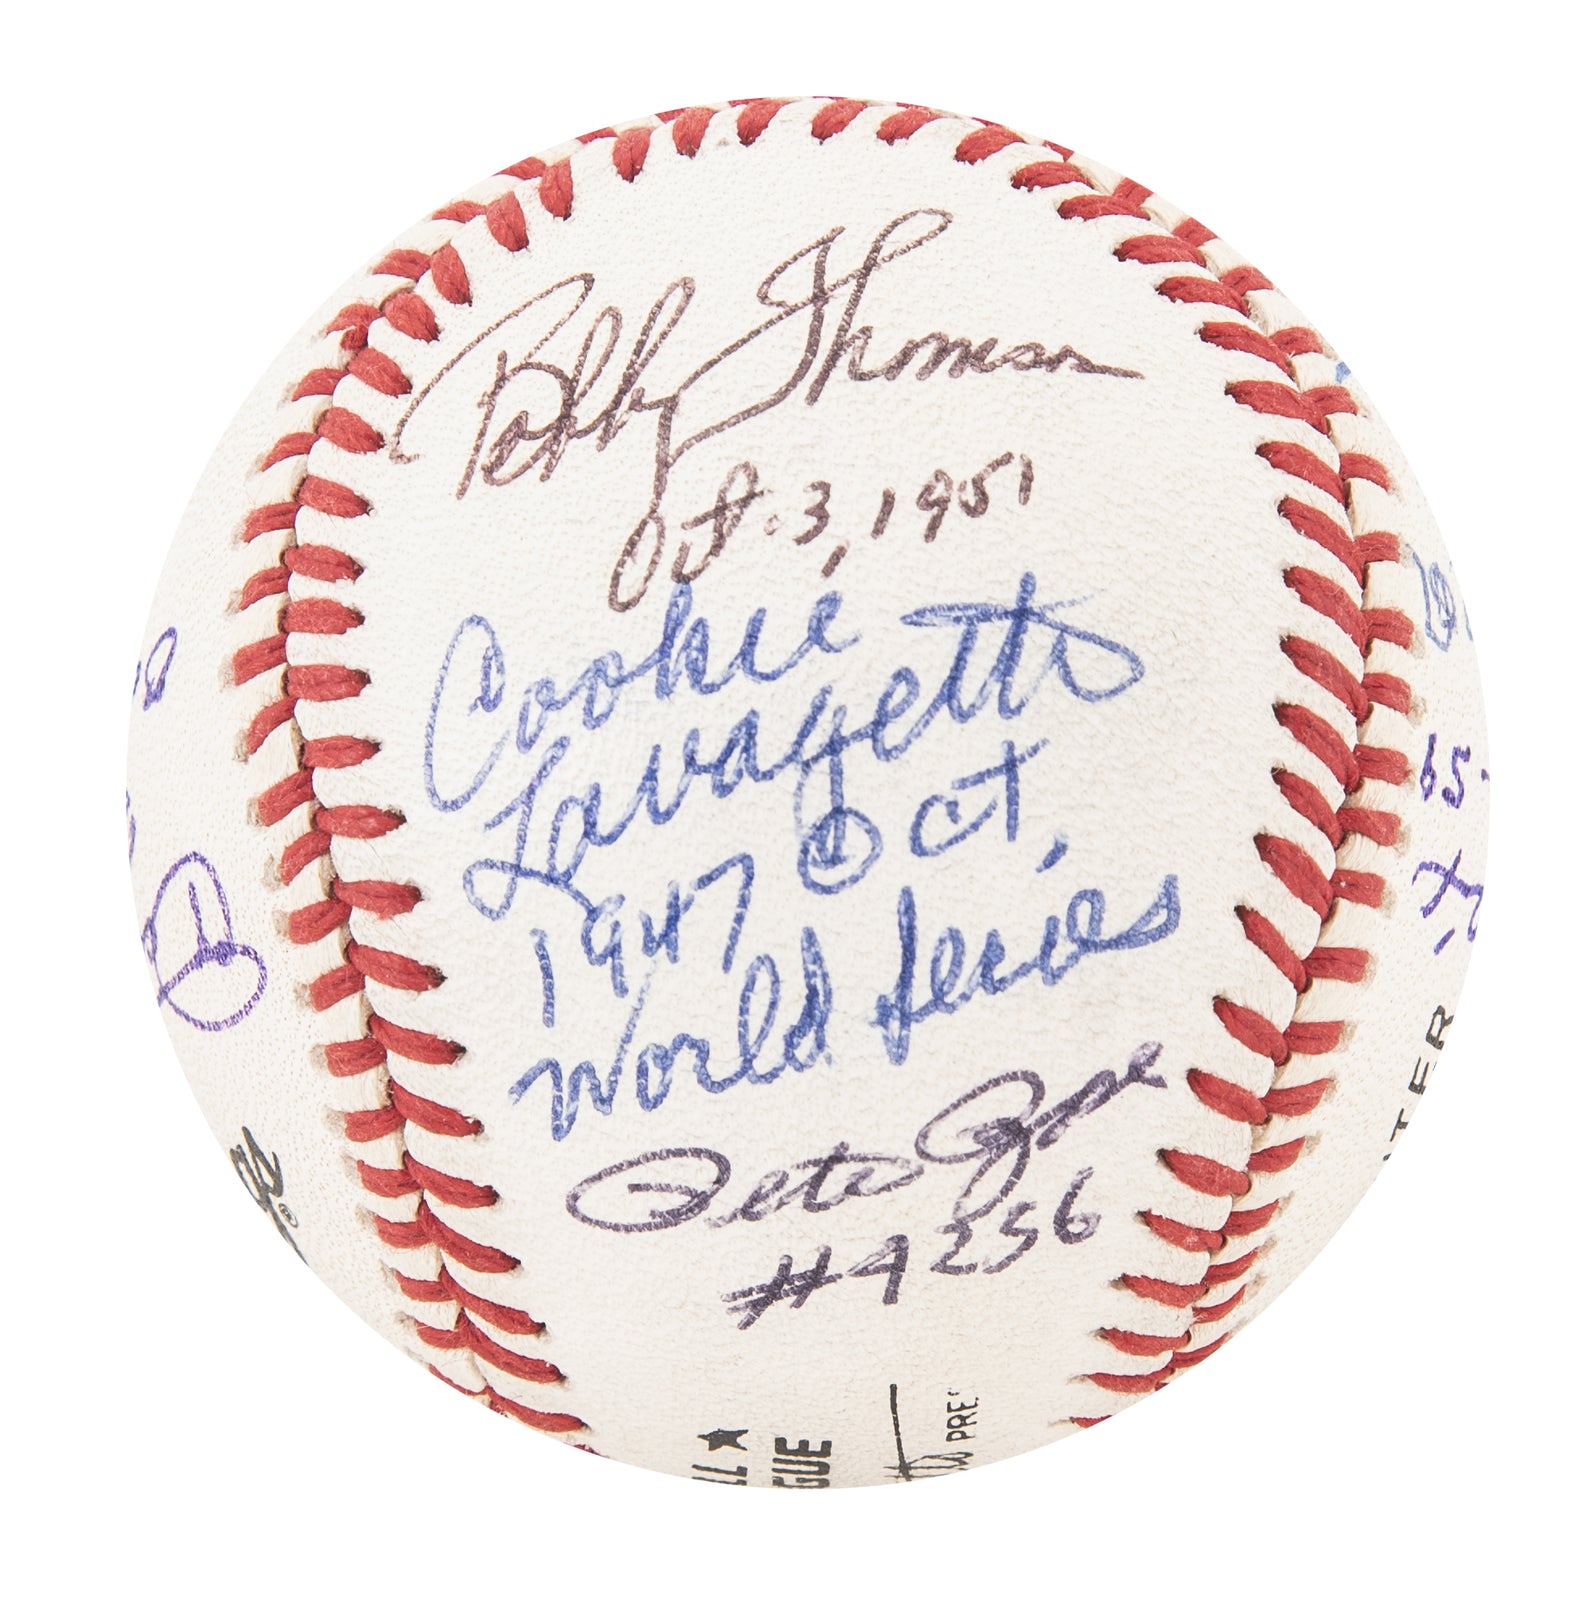 Bobby Thomson
Oct. 3, 1951
Cookie
Lavagetto
1947 Oct,
World Series
Pete Rose
#4256
65.
TER
PRES
GUE